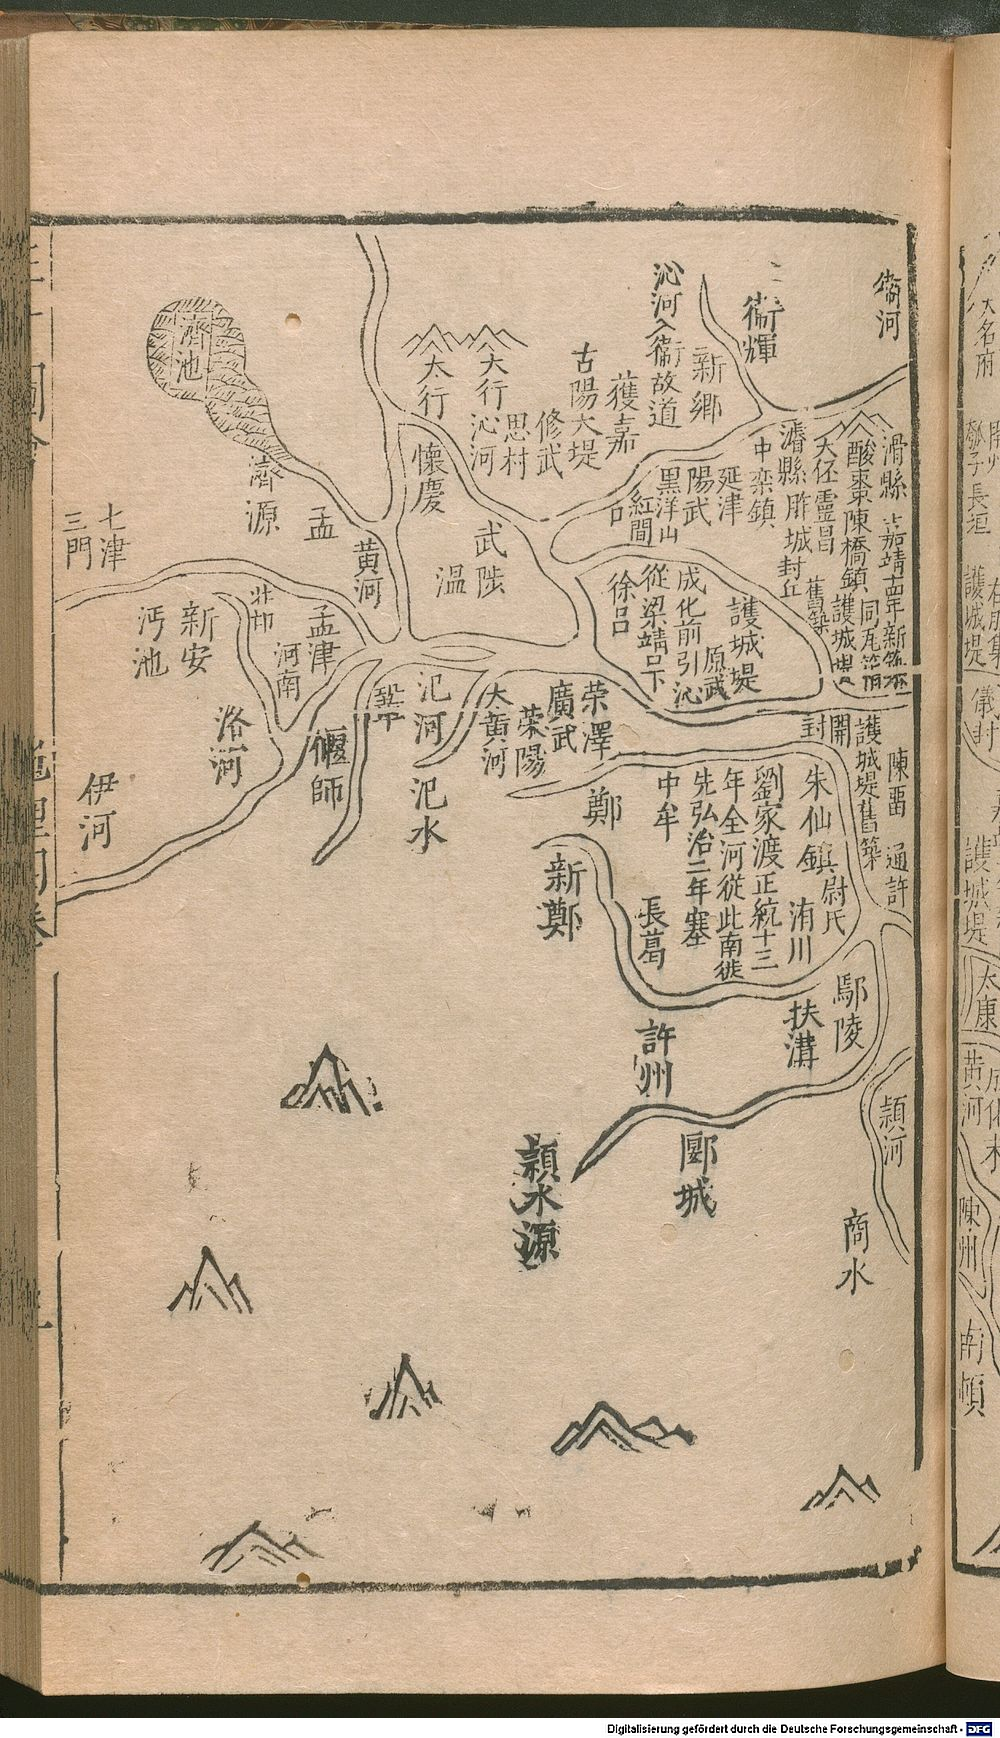 衞河
衞輝
沁河入衞故道
新鄉
獲嘉
古陽大堤
修武
思村
大行
沁河
太行
懷慶
濟池
濟源
孟
黃河
武陟
溫
七津
三門
新安
沔池
孟津
河南
洛河
伊河
偃師
鞏
汜河
汜水
大黃河
滎陽
廣武
荣澤
鄭
滑縣
嘉靖
年新築
酸棗陳橋鎮
大伾
靈昌
濬縣
胙城
封丘
中欒鎮
延津
陽武
黒洋山
紅間口
舊築
護城堤
同瓦箱
護城堤
原武
成化前引沁
從梁靖口下
徐呂
開封
護城堤舊築
陳留
通許
朱仙鎮
尉氏
洧川
劉家渡正統十三
年全河從此南徙
先弘治二年塞
中牟
長葛
新鄭
鄢陵
扶溝
許州
郾城
潁水源
潁河
商水
大名府
長垣
護城堤
儀封
護城堤
太康
黃河
陳州
南頓
Digitalisierung gefördert durch die Deutsche Forschungsgemeinschaft - DFG